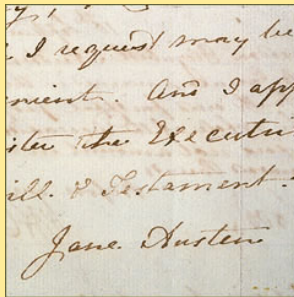 I request may be
ment. And I app
ster the Executri
ill & Testament.
Jane Austen